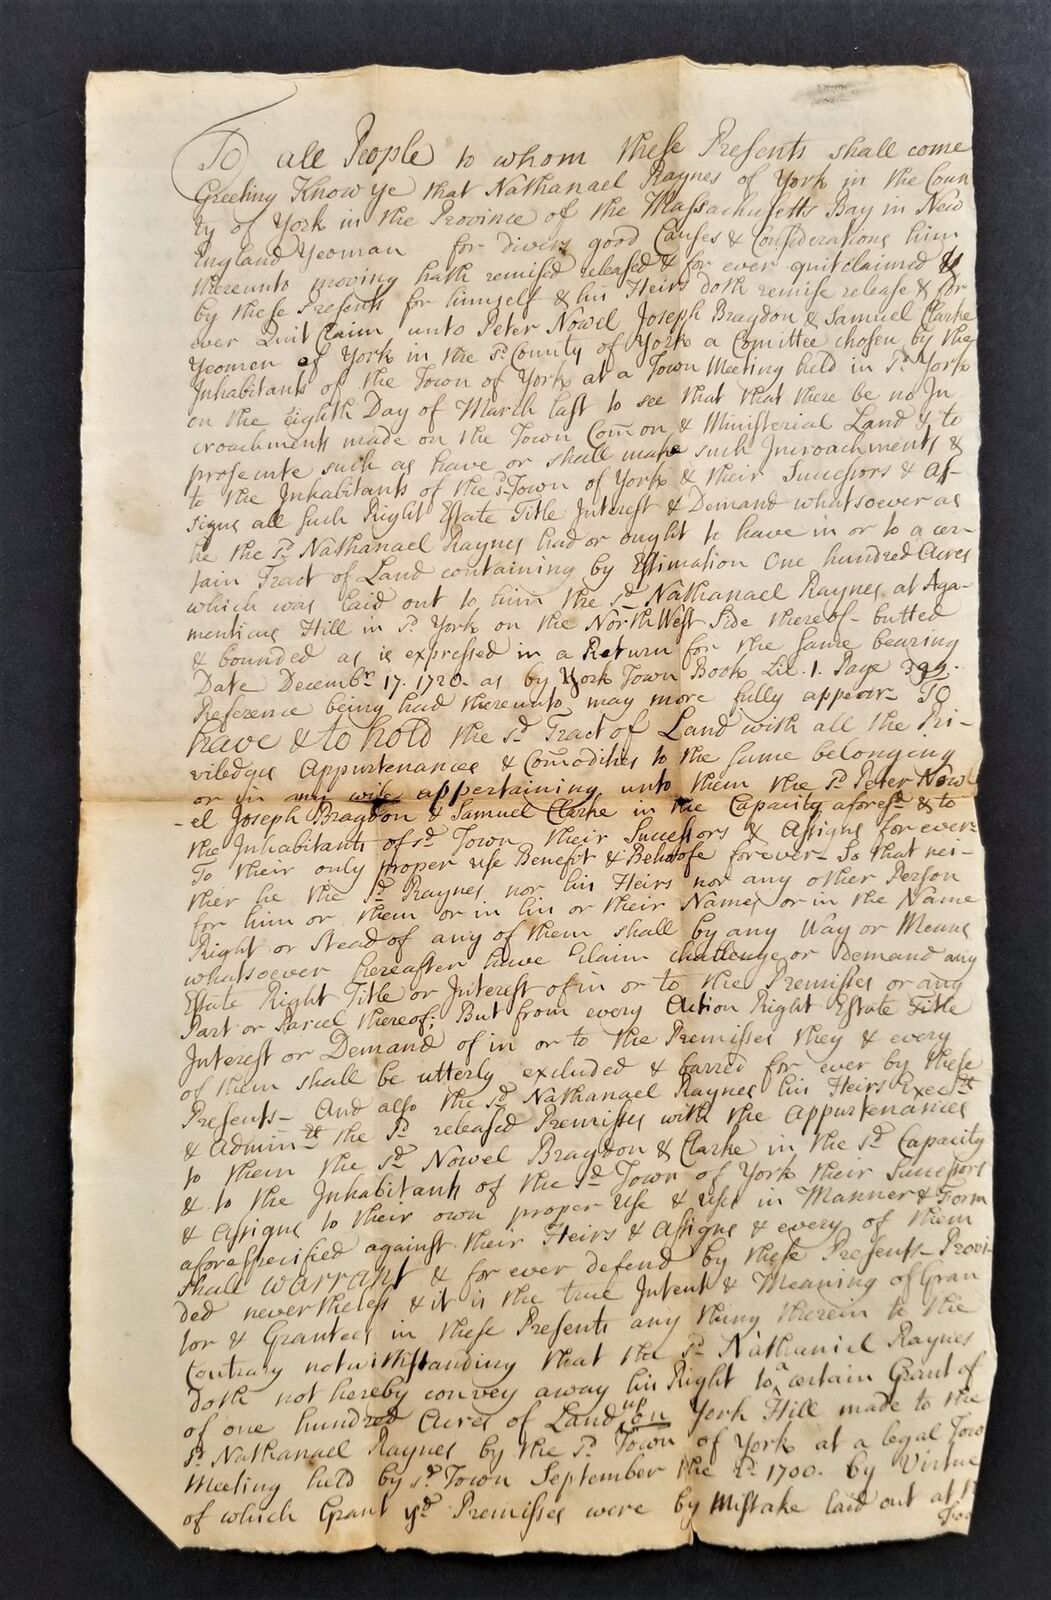 To all People to whom these Presents shall come
Greeting Know ye that Nathanael Raynes of York in the Coun
ty of York in the Province of the Massachusetts Bay in New
England Yeoman for divers good Causes & Considerations him
thereunto moving hath remised released & for ever quitclaimed &
by these Presents for himself & his Heirs doth remise release & for
ever Quit Claim unto Peter Nowel Joseph Bragdon & Samuel Clarke
Yeomen of York in the sd. County of York a Comittee chosen by the
Inhabitants of the Town of York at a Town Meeting held in sd. York
on the eighth Day of March last to see that that there be no In
croachments made on the Town Comon & Ministerial Land & to
prosecute such as have or shall make such Incroachments &
to the Inhabitants of the sd. Town of York & their Successors & As-
signs all such Right Estate Title Interest & Demand whatsoever as
he the sd. Nathanael Raynes had or ought to have in or to a cer-
tain Tract of Land containing by Estimation One hundred Acres
which was laid out to him the sd. Nathanael Raynes at Aga-
menticus Hill in sd. York on the North West Side thereof- butted
& bounded as is expressed in a Return for the same bearing
Date Decembr. 17. 1720. as by York Town Book Lib. 1. Page
Reference being had thereunto may more fully appear- To
have & to hold the sd. Tract of Land with all the Pri-
viledges Appurtenances & Comodities to the same belonging
or in any wise appertaining unto them the sd. Peter Now
-el Joseph Bragdon & Samuel Clarke in the Capacity aforesd. & to
the Inhabitants of sd. Town their Successors & Assigns for ever-
To their only proper use Benefit & Behoofe forever- So that nei-
ther he the sd. Raynes nor his Heirs nor any other Person
for him or them or in his or their Names or in the Name
Right or Stead of any of them shall by any Way or Means
whatsoever hereafter have Claim challenge or Demand any
Estate Right Title or Interest of in or to the Premisses or any
Part or Parcel thereof; But from every Action Right Estate Title
Interest or Demand of in or to the Premisses they & every
of them shall be utterly excluded & barred for ever by these
Presents- And also the sd. Nathanael Raynes his Heirs Execrs.
& Adminrs. the sd. released Premisses with the Appurtenances
to them the sd. Nowel Bragdon & Clarke in the sd. Capacity
& to the Inhabitants of the sd. Town of York their Successors
& Assigns to their own proper Use & Uses in Manner & Form
aforespecified against their Heirs & Assigns & every of them
shall warrant & for ever defend by these Presents- Provi-
ded nevertheless & it is the true Intent & Meaning of Gran
tor & Grantees in these Presents any thing therein to the
Contrary notwithstanding that the sd. Nathaniel Raynes
Doth not hereby convey away his Right to a certain Grant of
of one hundred Acres of Land upon York Hill made to the
sd. Nathanael Raynes by the sd. Town of York at a legal Tow
Meeting held by sd. Town September the 1700. by Virtue
of which Grant ysd. Premisses were by Mistake laid out at